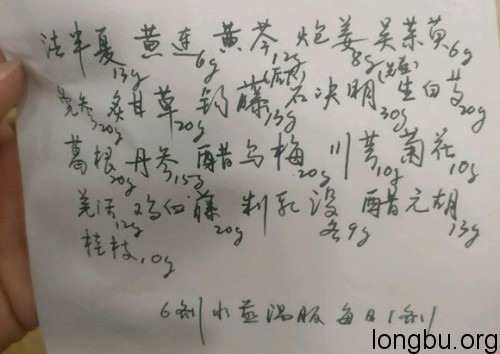 法半夏13g 黄连6g 黄芩12g 炮姜8g 吴茱萸6g
党参20g 炙甘草20g 钩藤(后下)15g 石决明(先煎)30g 生白芍20g
葛根20g 丹参15g 醋乌梅20g 川芎10g 菊花10g
羌活12g 鸡血藤20g 制乳没各9g 醋元胡13g
桂枝10g
6剂 水煎温服 每日1剂
longbu.org